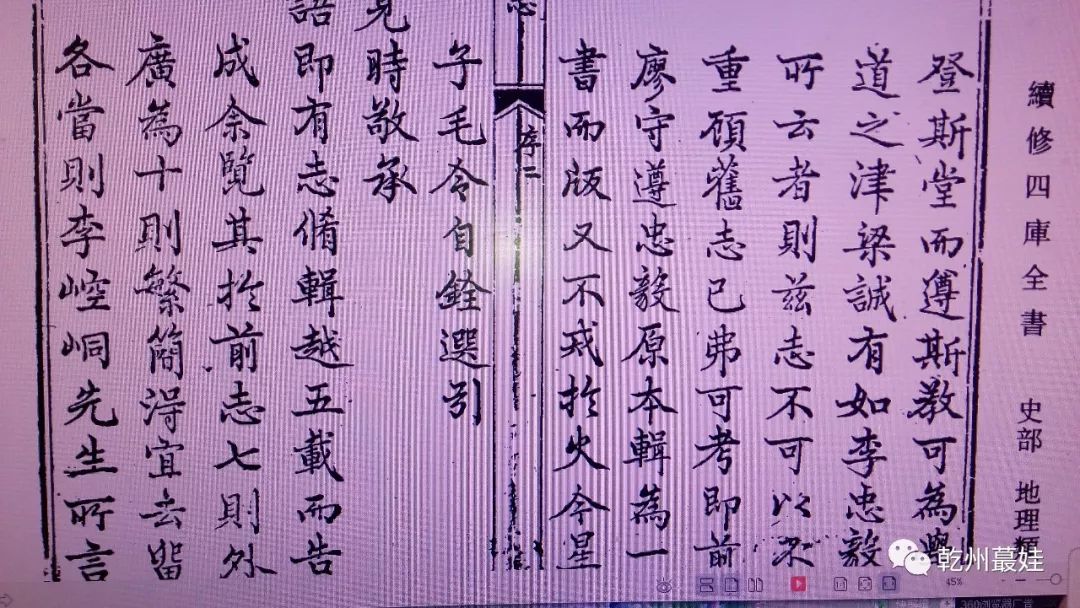 續修四庫全書 史部 地理類
登斯堂而遵斯教可為輿
道之津梁誠有如李忠毅
所云者則茲志不可以不
重頋舊志已弗可考即前
廖守遵忠毅原本輯為一
書而版又不戒扵火今星
志
序二
子毛令自銓選引
見時敬承
語即有志脩輯越五載而告
成余覽其扵前志七則外
廣為十則繁簡淂宜去畱
各當則李崆峒先生所言
乾州蔓娃
45%